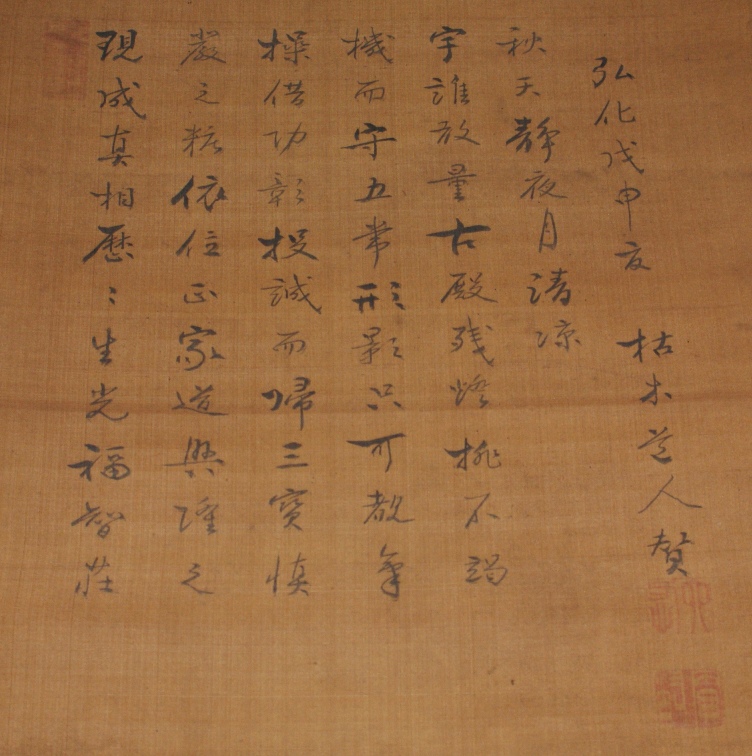 現成真相歴〻生光福智荘
嚴之粧依位正家道興隆之
操借功彰投誠而帰三寳慎
機而守五常形影只可覩氣
宇誰敢量古殿残燈挑不竭
秋天靜夜月清凉
弘化戊申夏 枯木道人賛